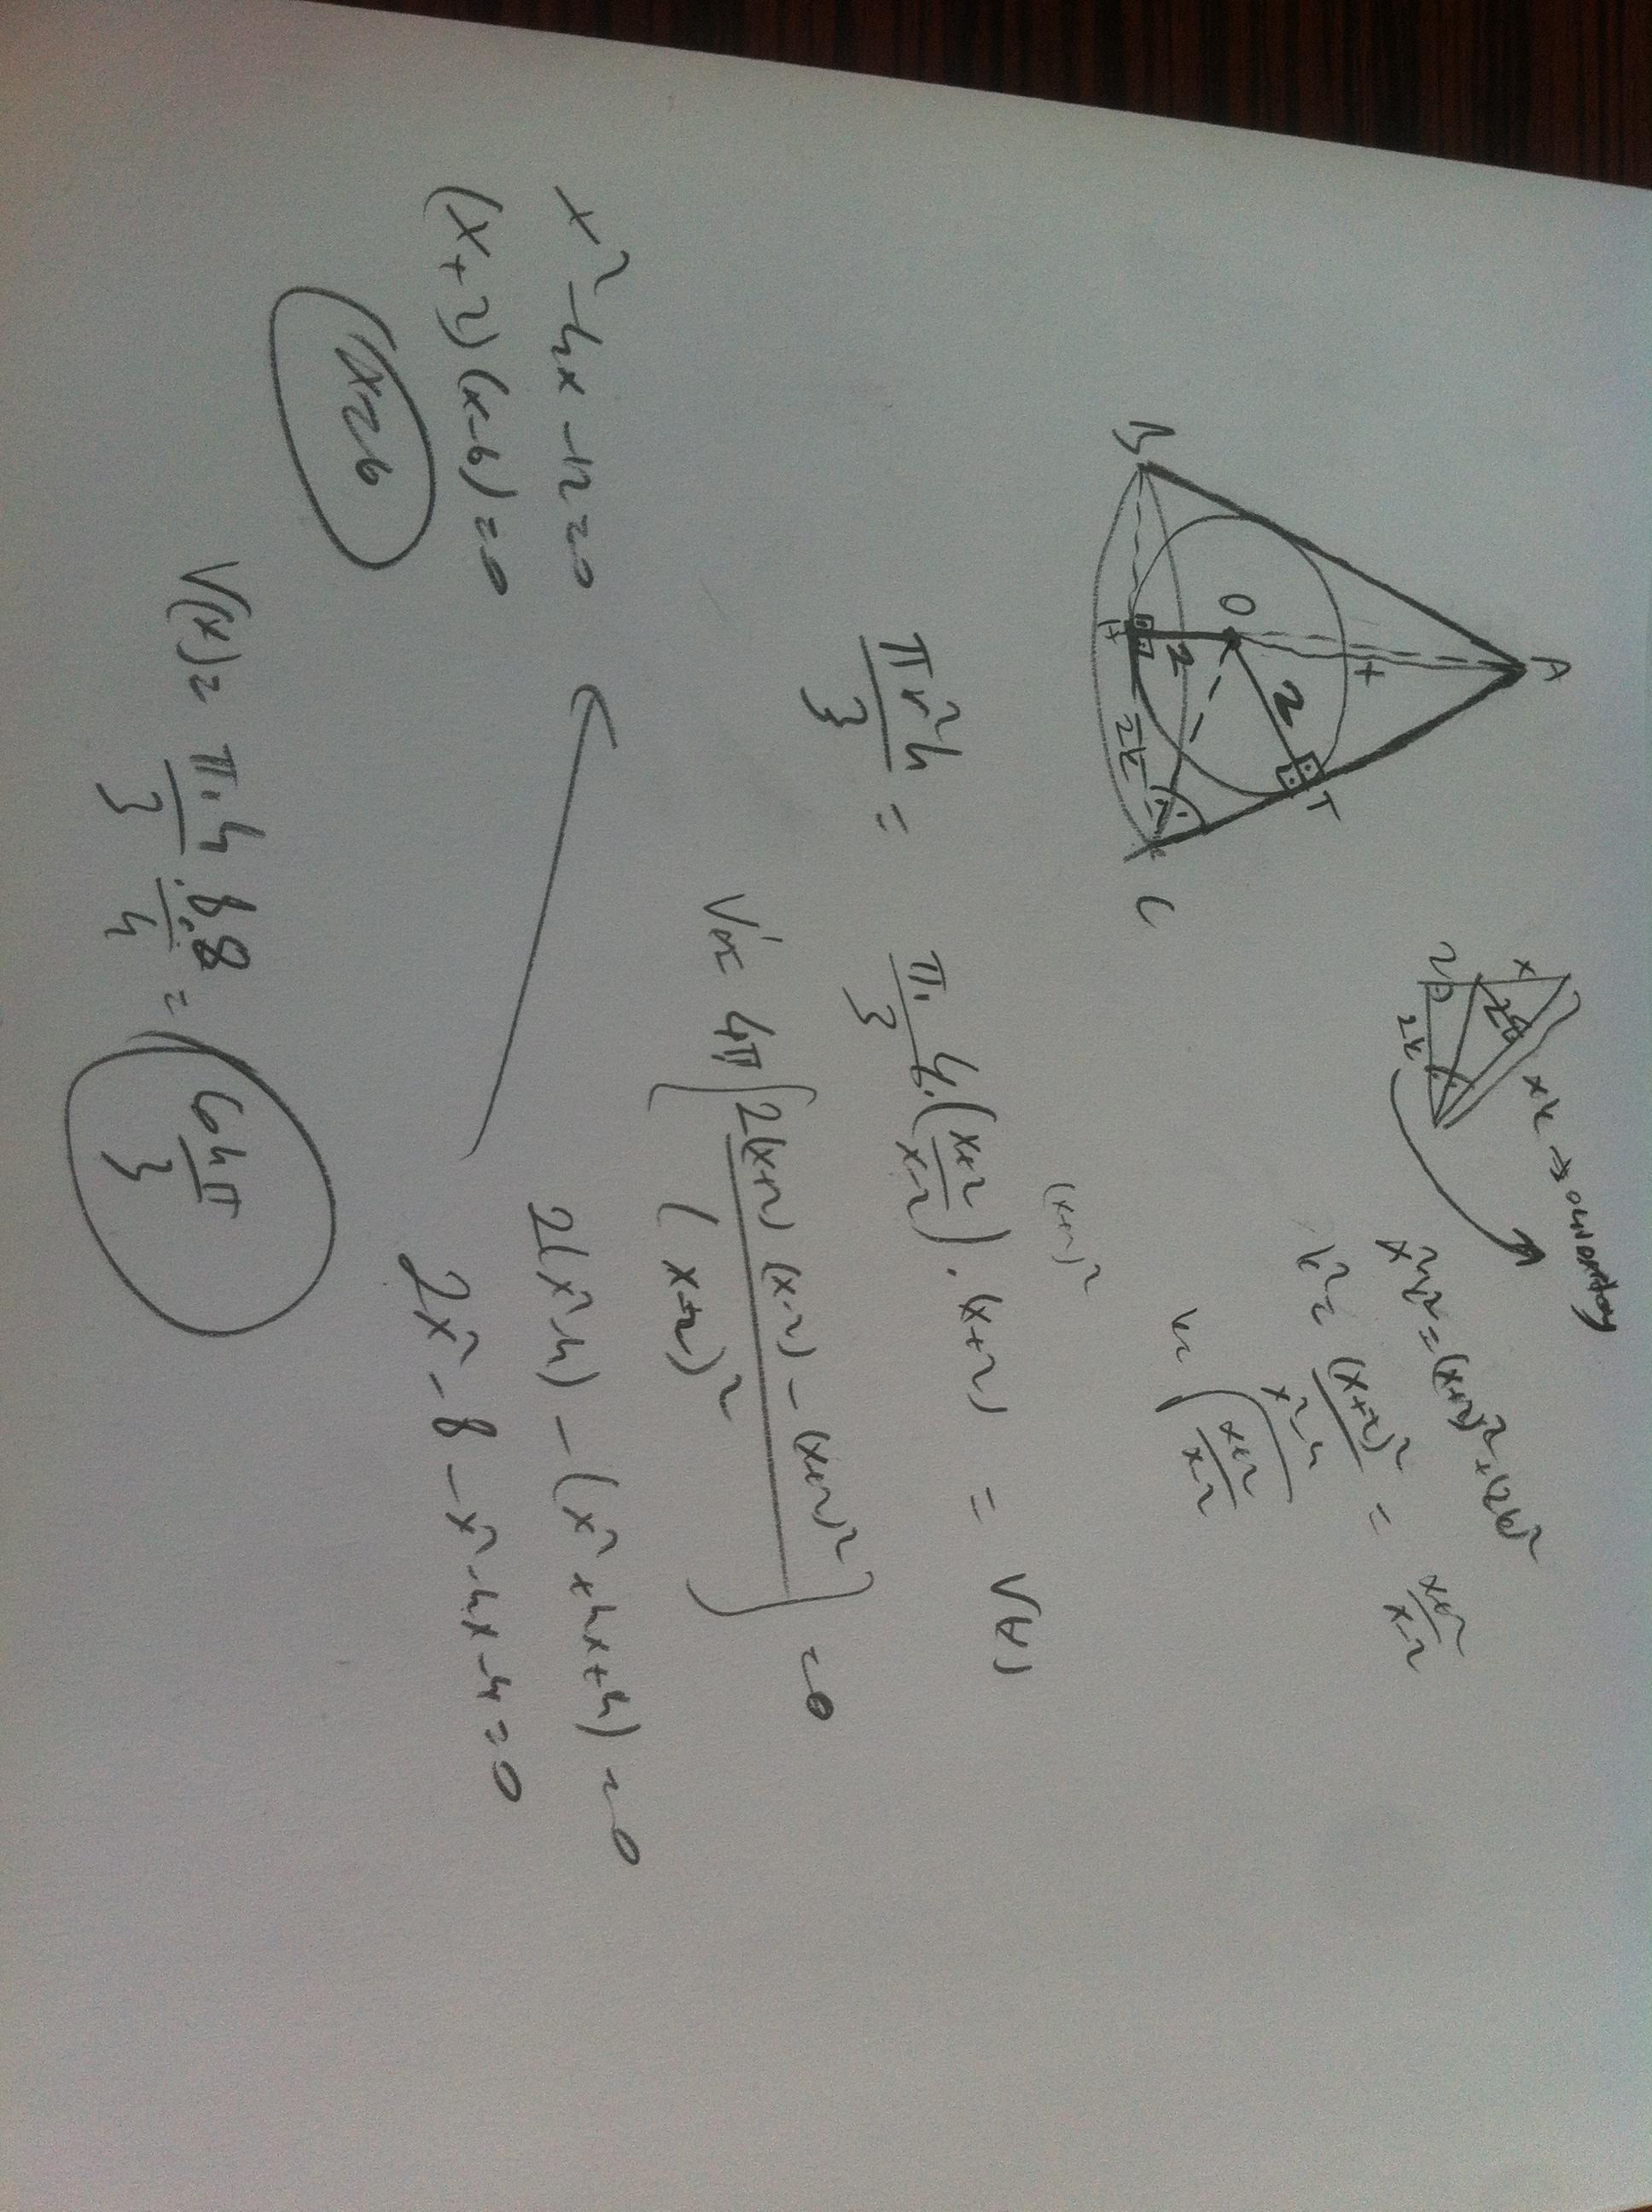 A
x
O
2
T
2
B
H
2k
C
x
2
2k
xk → açıortaydan
x²k² = (x+2)² + (2k)²
k² = (x+2)² / x²-4 = x+2 / x-2
k = √(x+2 / x-2)
(x+2)²
πr²h / 3 = π/3 · 4 · (x+2 / x-2) · (x+2) = V(x)
V' = 4π/3 [2(x+2)(x-2) - (x+2)² / (x+2)²] = 0
2(x²-4) - (x²+4x+4) = 0
2x² - 8 - x² - 4x - 4 = 0
x² - 4x - 12 = 0
(x+2)(x-6) = 0
x = 6
V(x) = π·4/3 · 8·8/4 = 64π/3